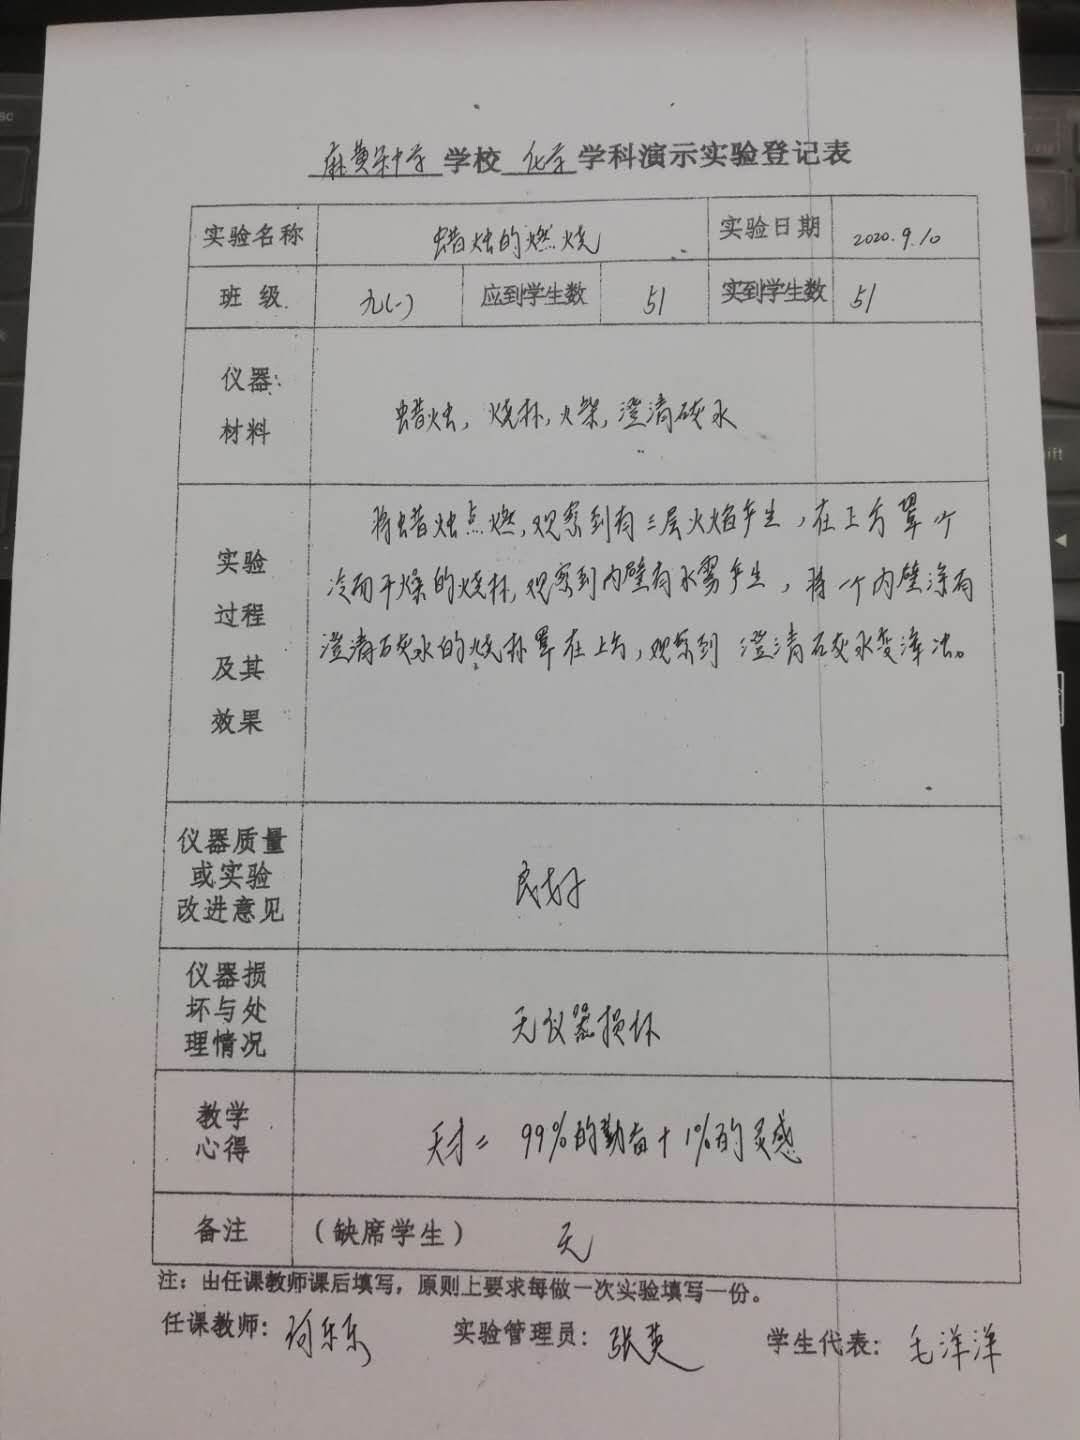 麻黄梁中学 学校 化学 学科演示实验登记表
实验名称 蜡烛的燃烧 实验日期 2020.9.10
班 级 九(一) 应到学生数 51 实到学生数 51
仪器:
材料
蜡烛, 烧杯, 火柴, 澄清石灰水
实验
过程
及其
效果
将蜡烛点燃,观察到有三层火焰产生,在上方罩个
冷而干燥的烧杯,观察到内壁有水雾产生,将一个内壁涂有
澄清石灰水的烧杯罩在上方,观察到 澄清石灰水变浑浊。
仪器质量
或实验
改进意见
良好
仪器损
坏与处
理情况
无仪器损坏
教学
心得
天才= 99%的勤奋+1%的灵感
备注 (缺席学生) 无
注:由任课教师课后填写,原则上要求每做一次实验填写一份。
任课教师: 东东 实验管理员: 张英 学生代表: 毛洋洋